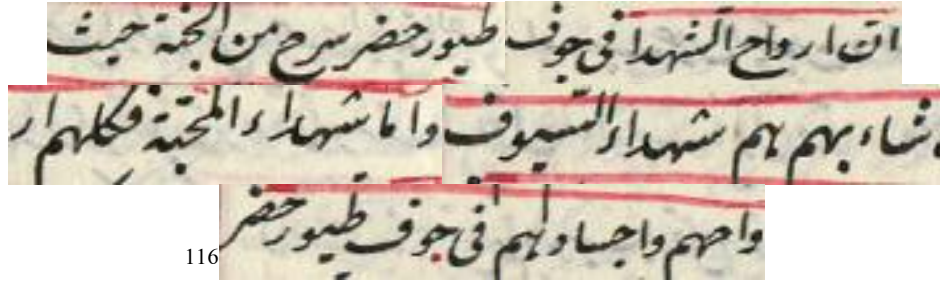 ان ارواح الشهدا فى جوف طيور خضر يسرح من الجنة حيث
شاء بهم هم شهداء السيوف واما شهداء المحبة فكلهم ار
واحهم واجسادهم فى جوف طيور خضر
116